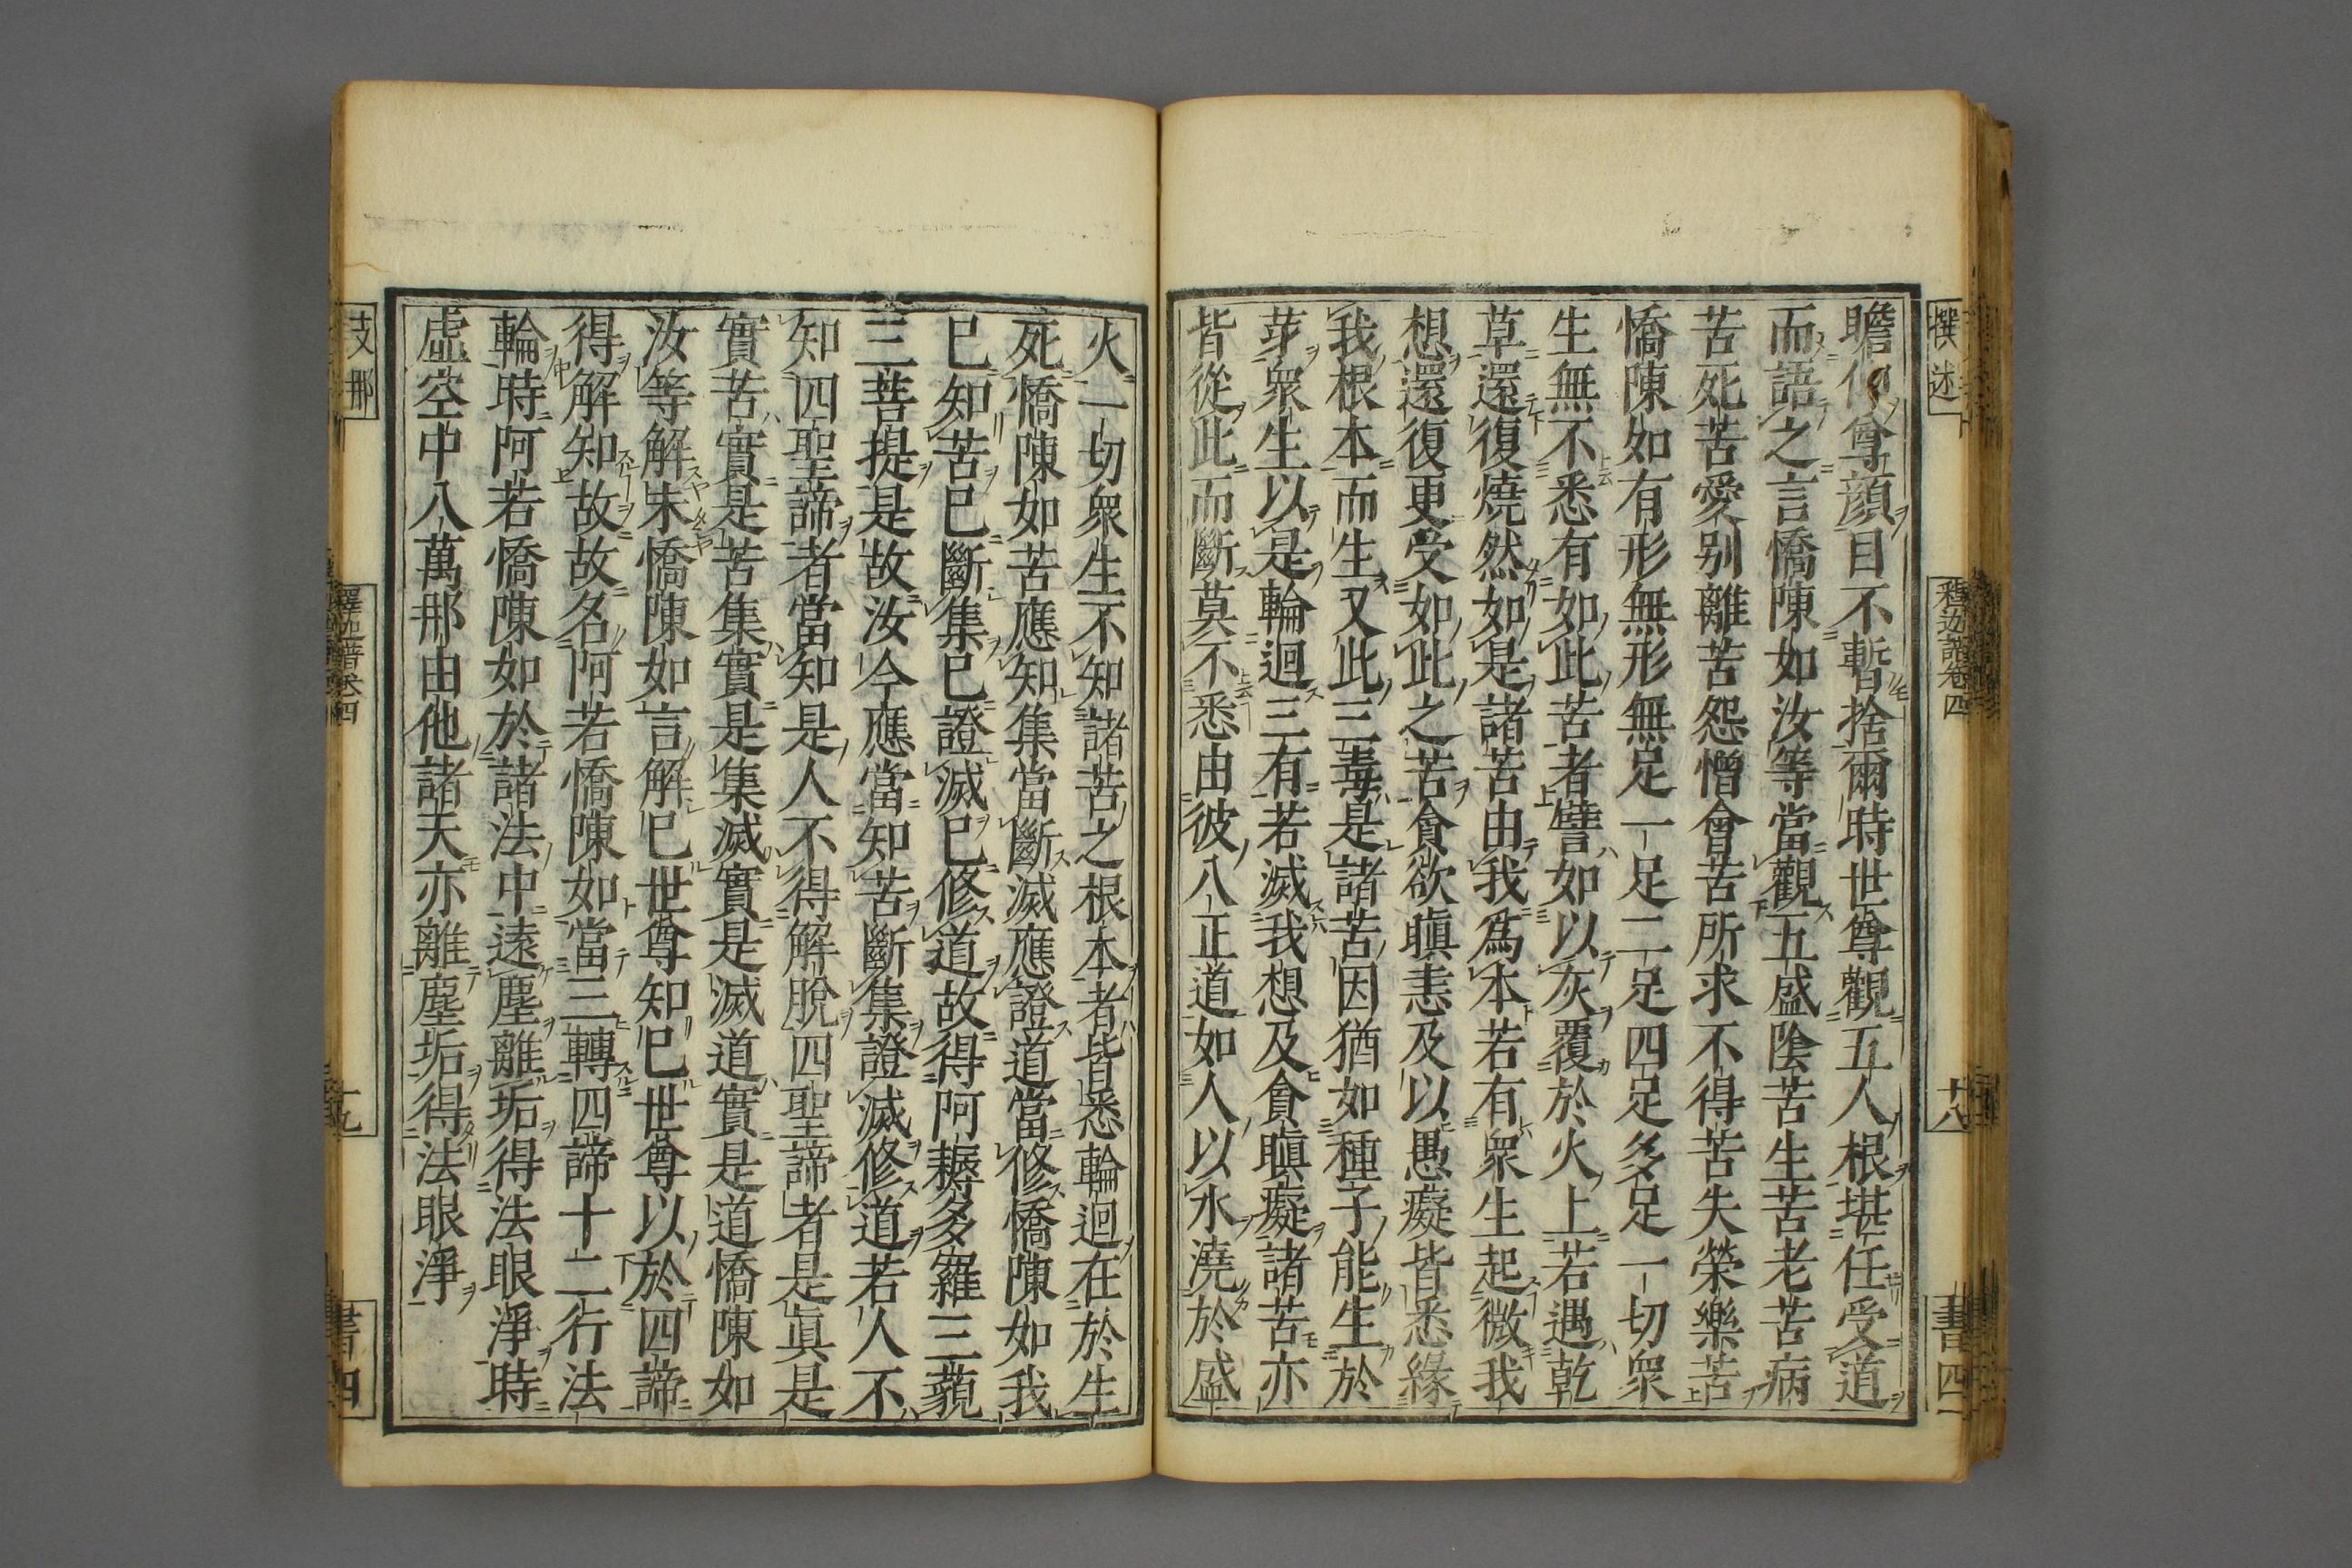 撰述
釋迦譜卷四
十八
書四
瞻仰尊顏目不暫捨爾時世尊觀五人根堪任受道
而語之言憍陳如汝等當觀五盛陰苦生苦老苦病
苦死苦愛別離苦怨憎會苦所求不得苦失榮樂苦
憍陳如有形無形無足一足二足四足多足一切衆
生無不悉有如此苦者譬如以灰覆於火上若遇乾
草還復燒然如是諸苦由我爲本若有衆生起微我
想還復更受如此之苦貪欲瞋恚及以愚癡皆悉緣
我根本而生又此三毒是諸苦因猶如種子能生於
芽衆生以是輪迴三有若滅我想及貪瞋癡諸苦亦
皆從此而斷莫不悉由彼八正道如人以水澆於盛
火一切衆生不知諸苦之根本者皆悉輪迴在於生
死憍陳如苦應知集當斷滅應證道當修憍陳如我
已知苦已斷集已證滅已修道故得阿耨多羅三藐
三菩提是故汝今應當知苦斷集證滅修道若人不
知四聖諦者當知是人不得解脫四聖諦者是眞是
實苦實是苦集實是集滅實是滅道實是道憍陳如
汝等解未憍陳如言解已世尊知已世尊以於四諦
得解知故故名阿若憍陳如當三轉四諦十二行法
輪時阿若憍陳如於諸法中遠塵離垢得法眼淨時
虛空中八萬那由他諸天亦離塵垢得法眼淨
支那
釋迦譜卷四
十九
書四